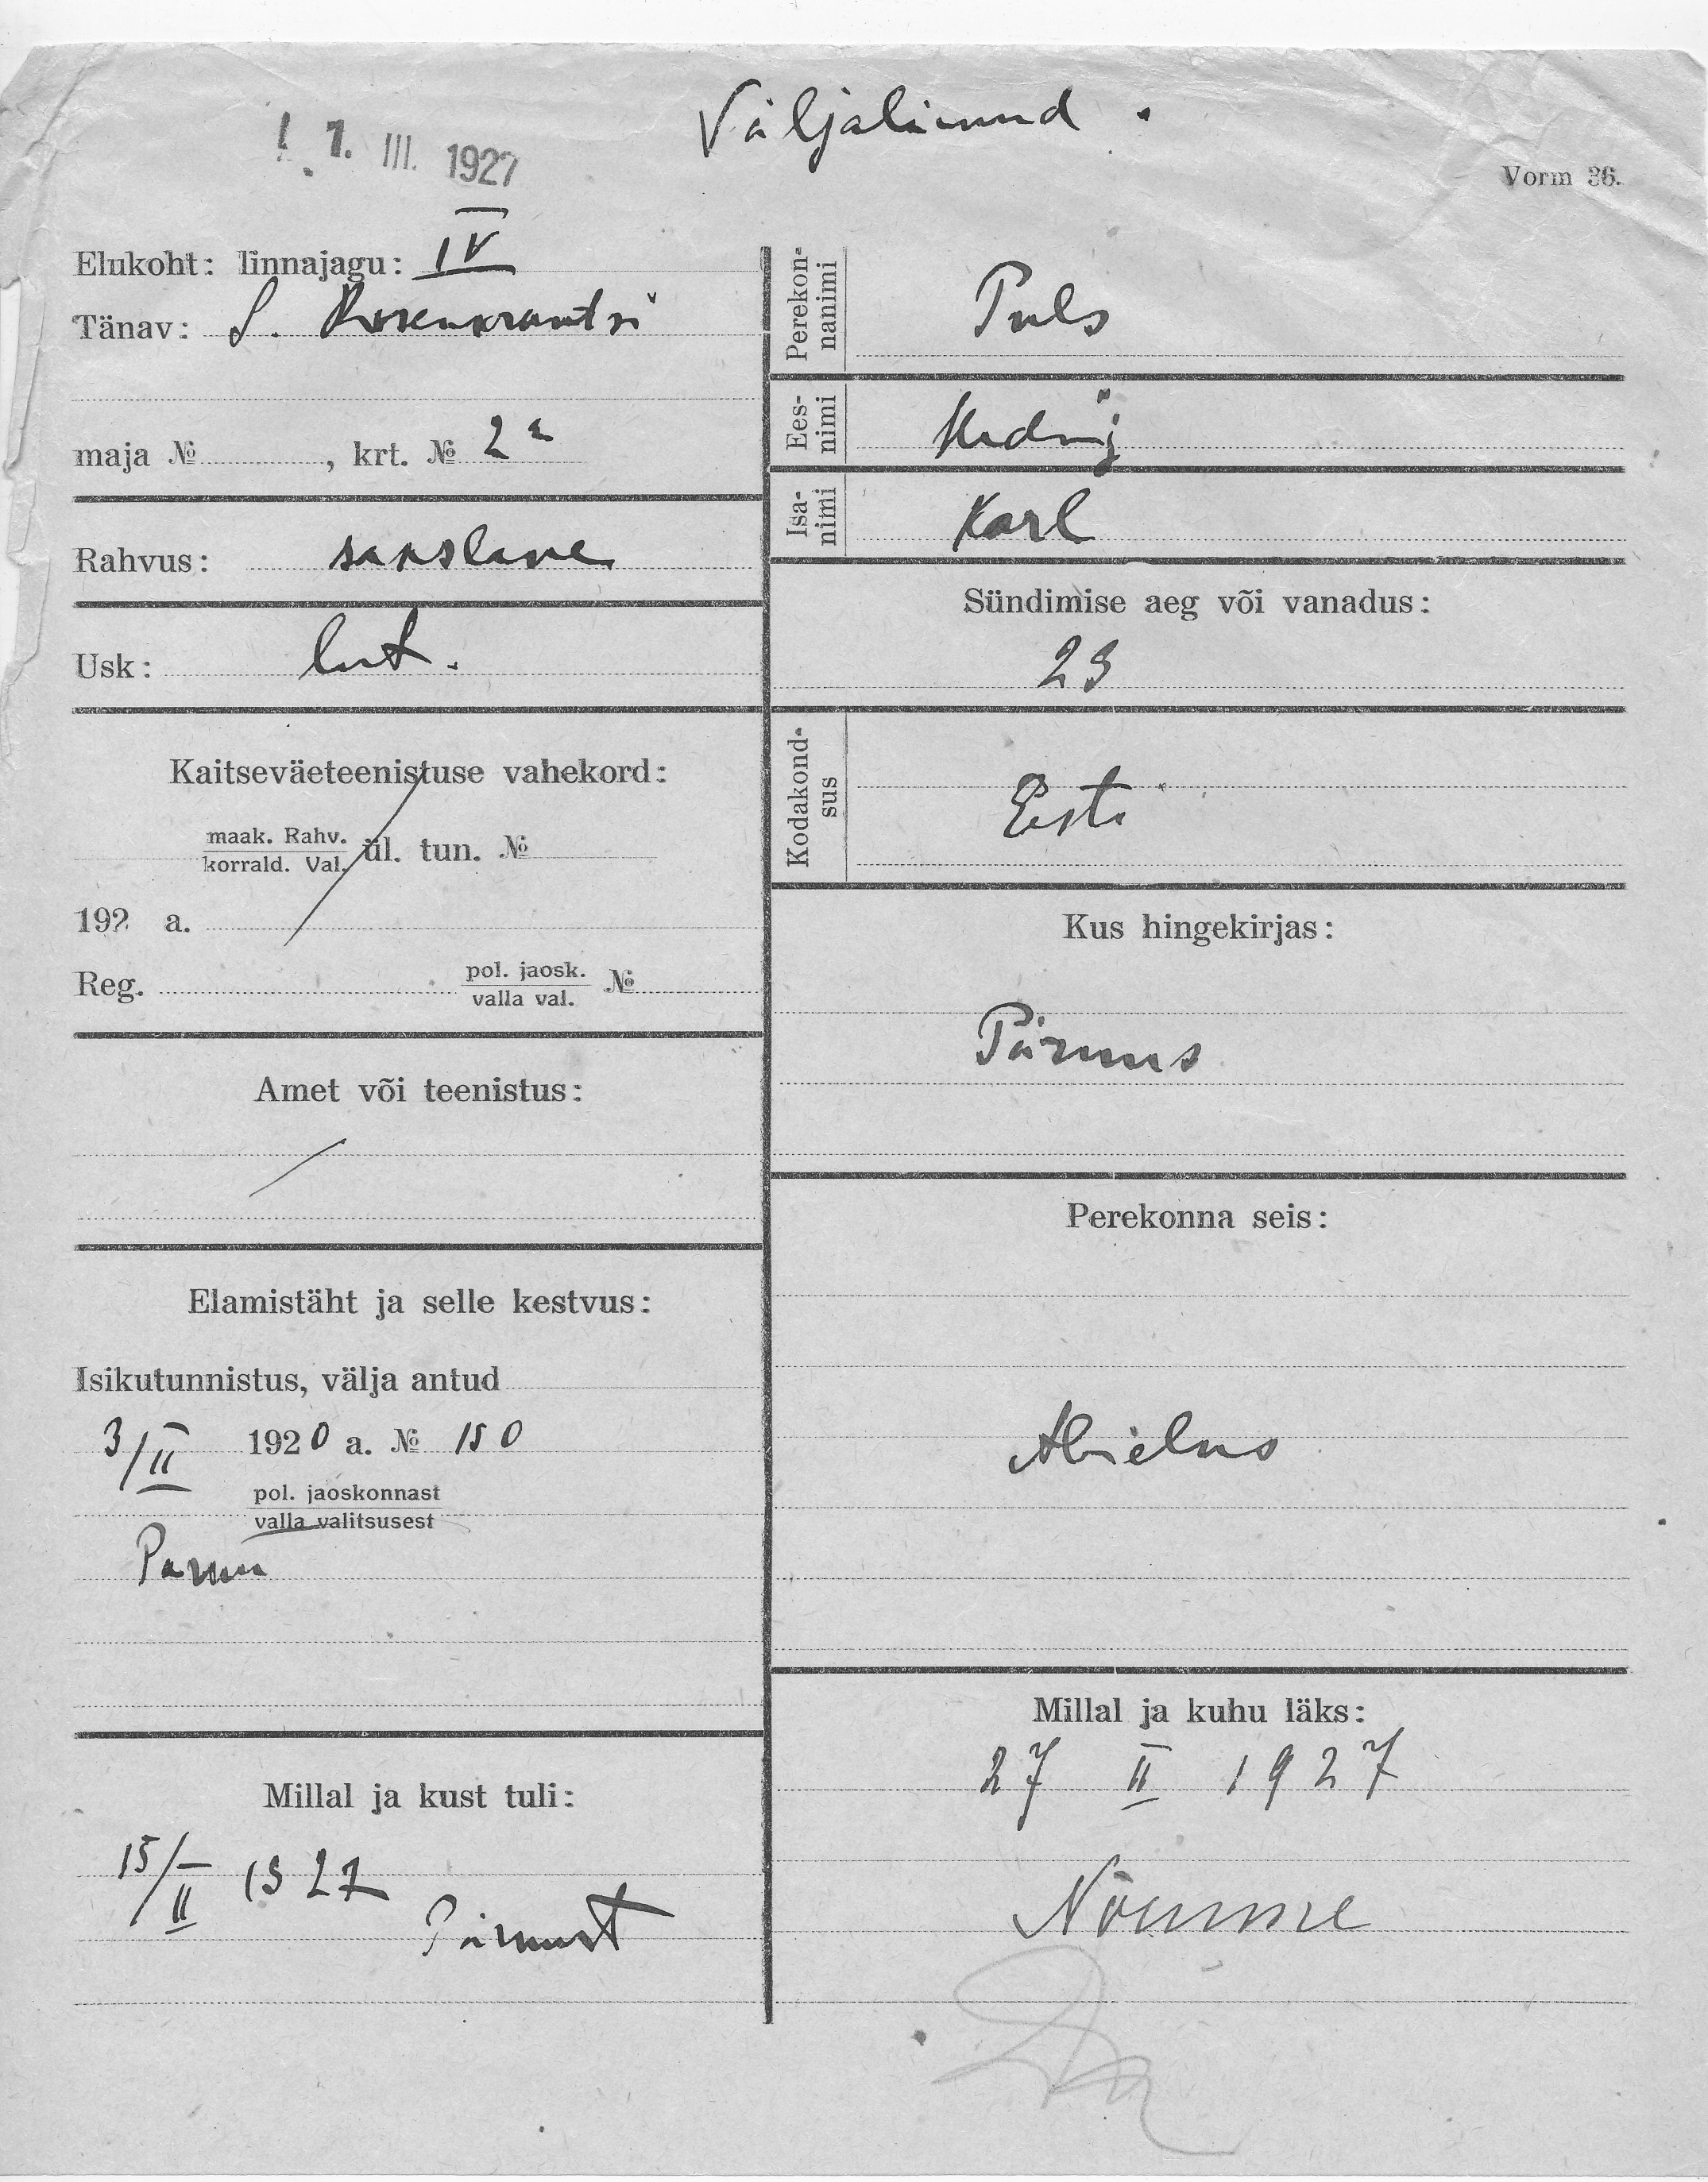 1. III. 1927
Väljaläinud.
Vorm 36.
Elukoht: linnajagu: IV
Tänav: S. Rosenkrantsi
maja № , krt. № 2a
Rahvus: sakslane
Usk: lut.
Kaitseväeteenistuse vahekord:
maak. Rahv.
korrald. Val. ül. tun. №
192 a.
Reg. pol. jaosk. №
valla val.
Amet või teenistus:
Elamistäht ja selle kestvus:
Isikutunnistus, välja antud
3/II 1920 a. № 150
pol. jaoskonnast
valla valitsusest
Pärnu
Millal ja kust tuli:
15/II 1927
Pärnust
Perekon-
nanimi
Puls
Ees-
nimi
Hedvig
Isa-
nimi
Karl
Sündimise aeg või vanadus:
29
Kodakond-
sus
Eesti
Kus hingekirjas:
Pärnus
Perekonna seis:
Abielus
Millal ja kuhu läks:
27 II 1927
Nõmme